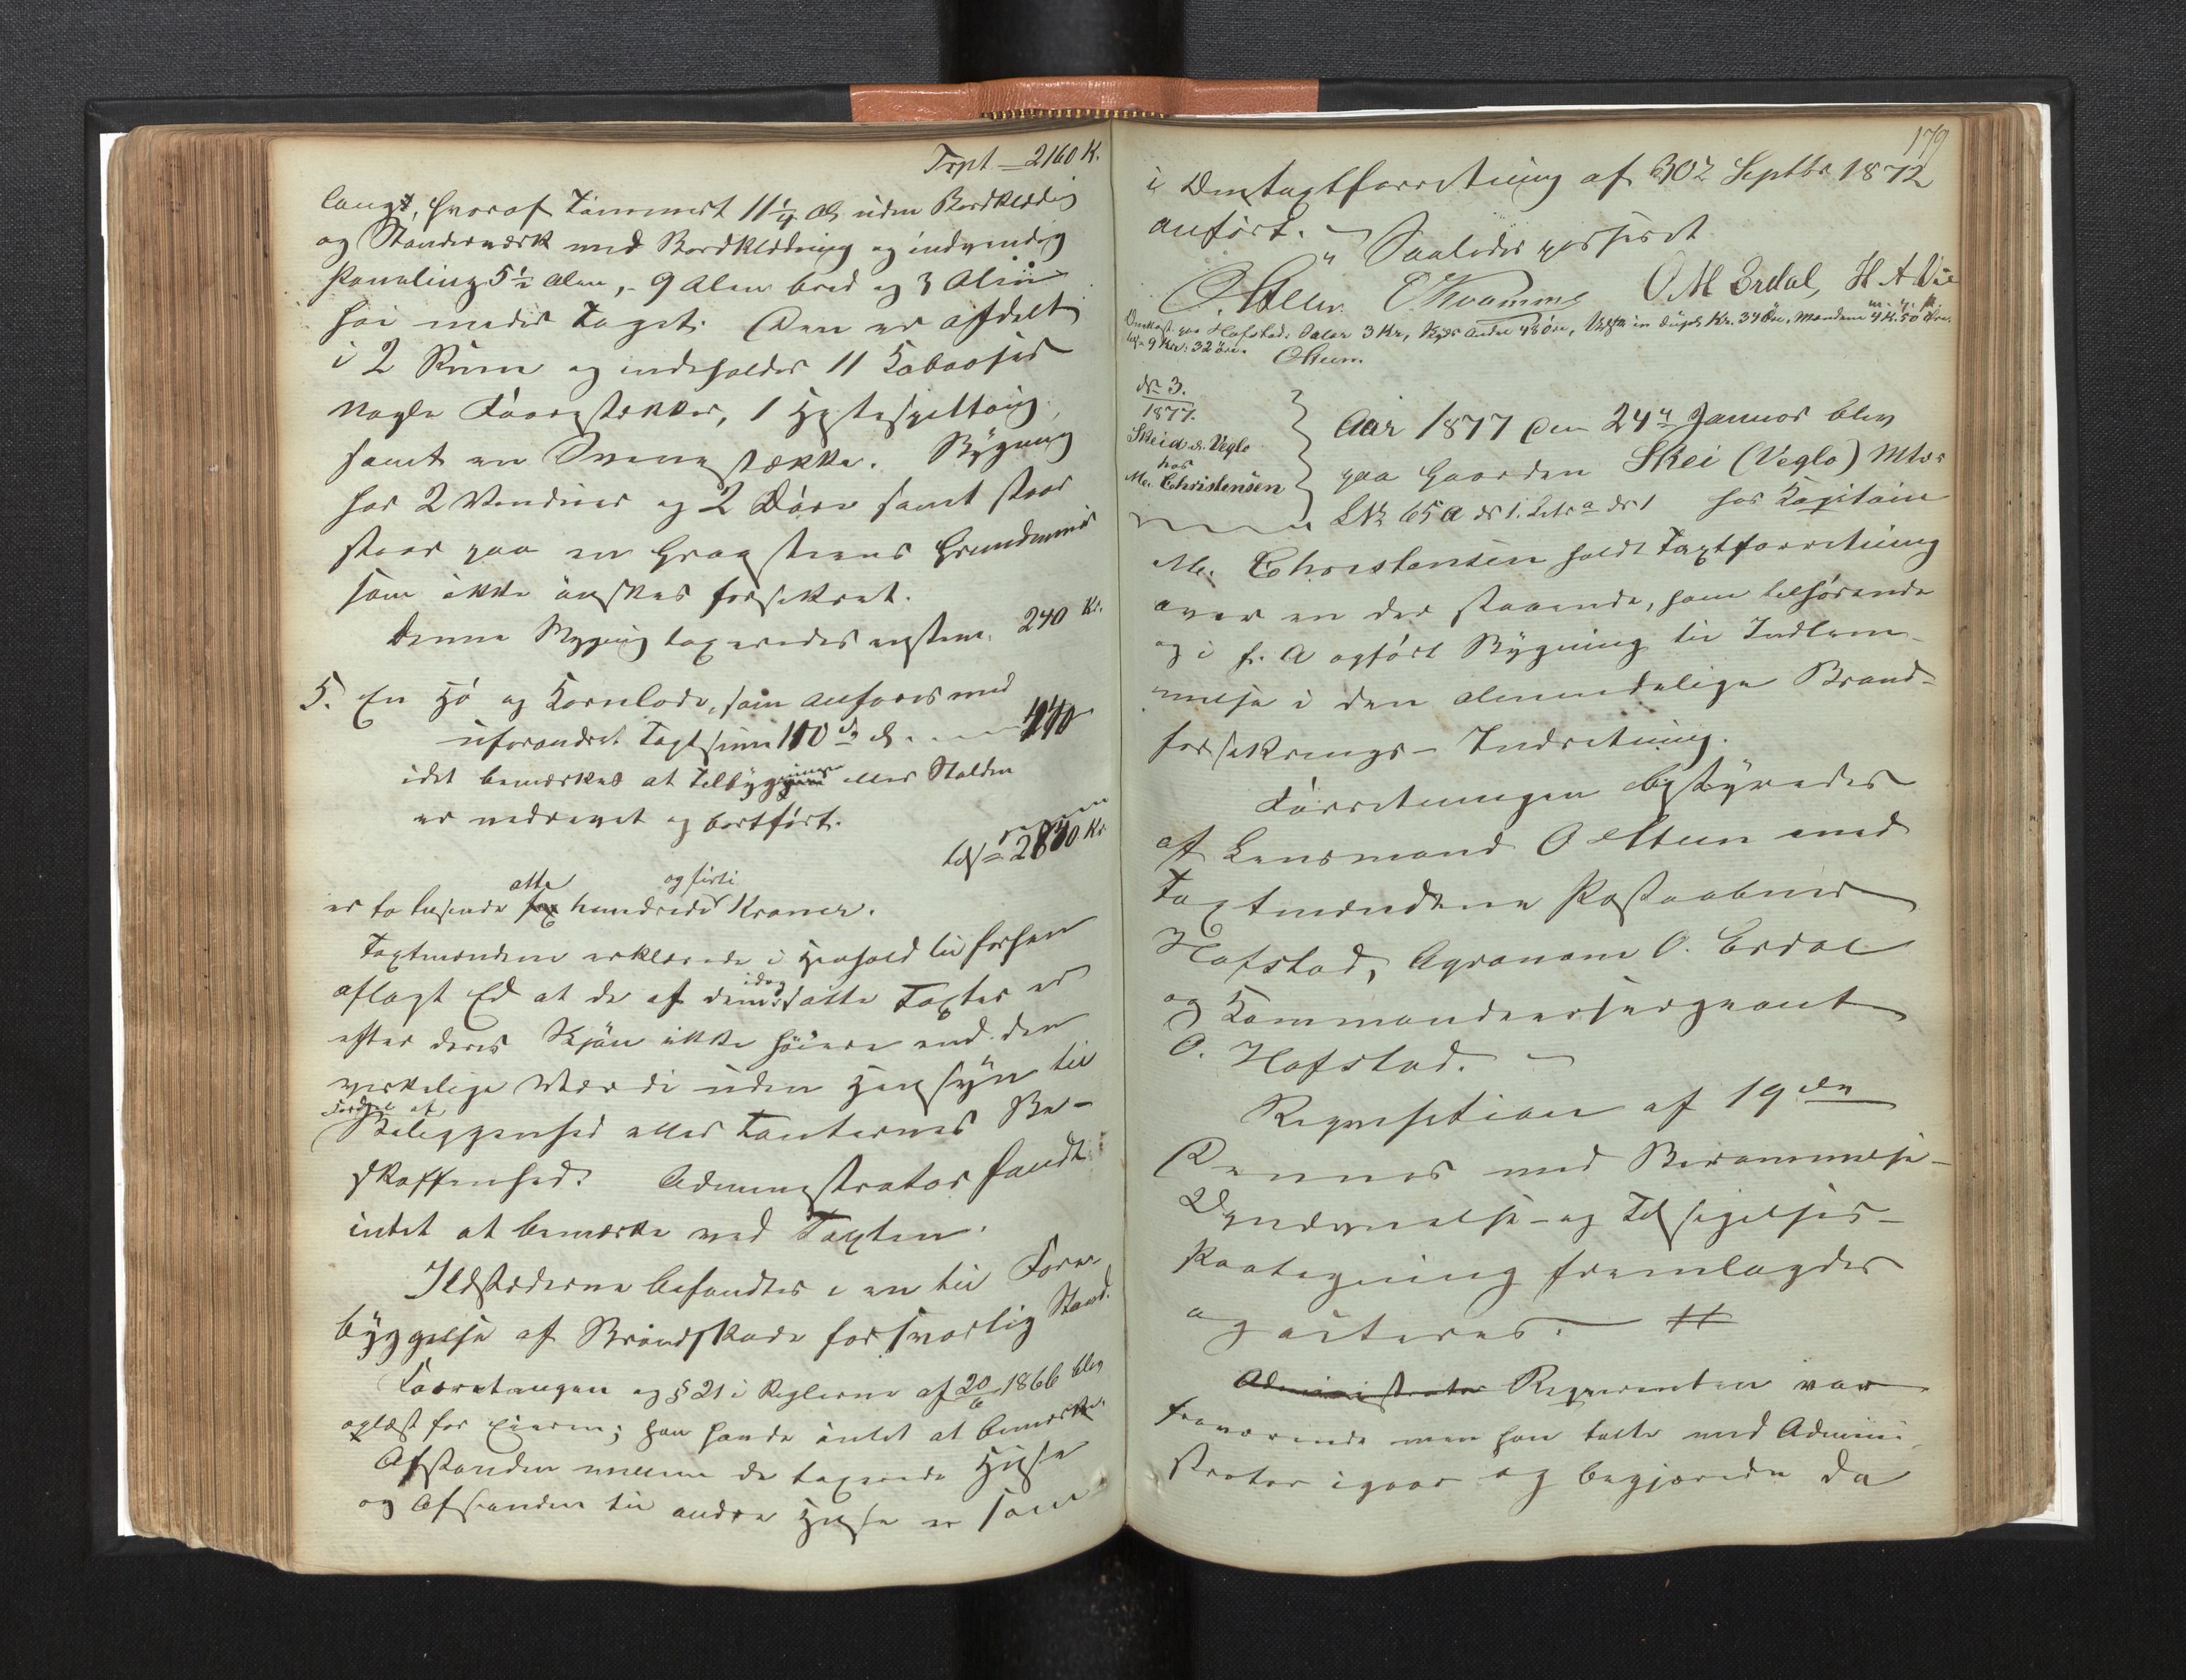 Trpt — 2160 K.
langt, hvoraf Tømmert 11 1/4 Al. uden Bordklædnig
og Standerværk med Bordklædning og indvendig
Paneling 5 1/2 Alen, - 9 Alen bred og 3 Alen
høi under Taget. Den er afdelt
i 2 Rum og indeholder 11 Kobaaser
nogle Faarestækker, 1 Hestespiltoug,
samt en Svinestække. Bygning
har 2 Vinduer og 2 Døre samt staar
staar paa en Graasteens Grundmuur
som ikke ønskes forsikret.
Denne Bygnig taxeredes enstem. 240 Kr.
5. En Hø og Kornlade, som anføres med
uforandret Taxtsum 110 Sp d. 440
idet bemærkes at Tilbygningen eller Stalden
er nedrevet og bortført.
tils = 2840 Kr
er to tusende otte hundrede og firti Kroner.
Taxtmændene erklærede i Henhold til forhen
aflagt Ed at de af dem idag satte Taxter er
efter deres Skjøn ikke høiere end den
virkelige Værdi uden Hensyn til
Fordel af
Beliggenhed eller Tomternes Be-
skaffenhed. Administrator fandt
intet at bemærke ved Taxten.
Ildstederne befandtes i en til Fore-
byggelse af Brandskade forsvarlig Stand.
Forretningen og § 21 i Reglerne af 20/6 1866 blev
oplæst for Eieren; han havde intet at bemærke.
Afstanden mellem de taxerede Huse
og Afstanden til andre Huse er som
179
i Omtaxtforretning af 30te Septbr 1872
anført. —
" Saaledes passeret
O. Steen. O Kvamme O M Erdal, H A Vie
m. p. P.
paa Hofstad. Salær 3 Kr, andre 48 Øre, Kr. 34 Øre, Mændene 4 K. 50 Øre.
tils. 9 Kr. 32 øre. OSteen.
No 3.
1877.
Skeid el. Veglo
hos
M. Christensen
Aar 1877 den 24de Januar blev
paa Gaarden Skei (Veglo) Mtr
LNo 65a No 1. Litr a No 1 hos Kapitain
M. Christensen holdt Taxtforretning
over en der staaende, ham tilhørende
og i fr. A opført Bygning til Indlem-
melse i den almindelige Brand-
forsikrings-Indretning.
Forretningen bestyredes
af Lensmand O Steen med
Taxtmændene Postaabner
Hofstad, Agronom O. Erdal
og Kommandeersergeant
O. Hofstad. —
Requisition af 19de
Dennes med Berammelse-
Opnævnelse- og Tilsigelses-
Paategning fremlagdes
og acteres. — #
Administrator Requirenten var
fraværende men han talte med Admini-
strator igaar og begjærede da